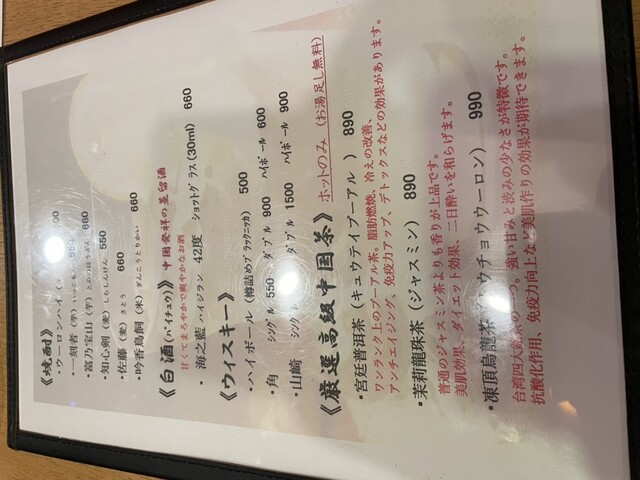 《焼酎》
・ウーロンハイ
・一刻者(芋)いっこもん 550
・富乃宝山(芋)とみのほうざん 660
・知心剣(麦)しらしんけん 550
・佐藤(麦)さとう 660
・吟香鳥飼(米)ぎんこうとりかい 660
《白酒(パイチュウ)》中国発祥の蒸留酒
甘くてまろやかで爽やかなお酒
・海之藍 ハイジラン 42度 ショットグラス(30ml) 660
《ウィスキー》
・ハイボール(樽詰めブラックニッカ) 500
・角 シングル 550 ダブル 900 ハイボール 600
・山崎 シングル ダブル 1500 ハイボール 900
《厳選高級中国茶》ホットのみ(お湯足し無料)
・宮廷普洱茶(キュウテイプーアル) 890
ワンランク上のプーアル茶、脂肪燃焼、冷えの改善、
アンチエイジング、免疫力アップ、デトックスなどの効果があります。
・茉莉龍珠茶(ジャスミン) 890
普通のジャスミン茶よりも香りが上品です。
美肌効果、ダイエット効果、二日酔いを和らげます。
・凍頂烏龍茶(トウチョウウーロン) 990
台湾四大銘茶の一つ。強い甘みと渋みの少なさが特徴です。
抗酸化作用、免疫力向上など美肌作りの効果が期待できます。